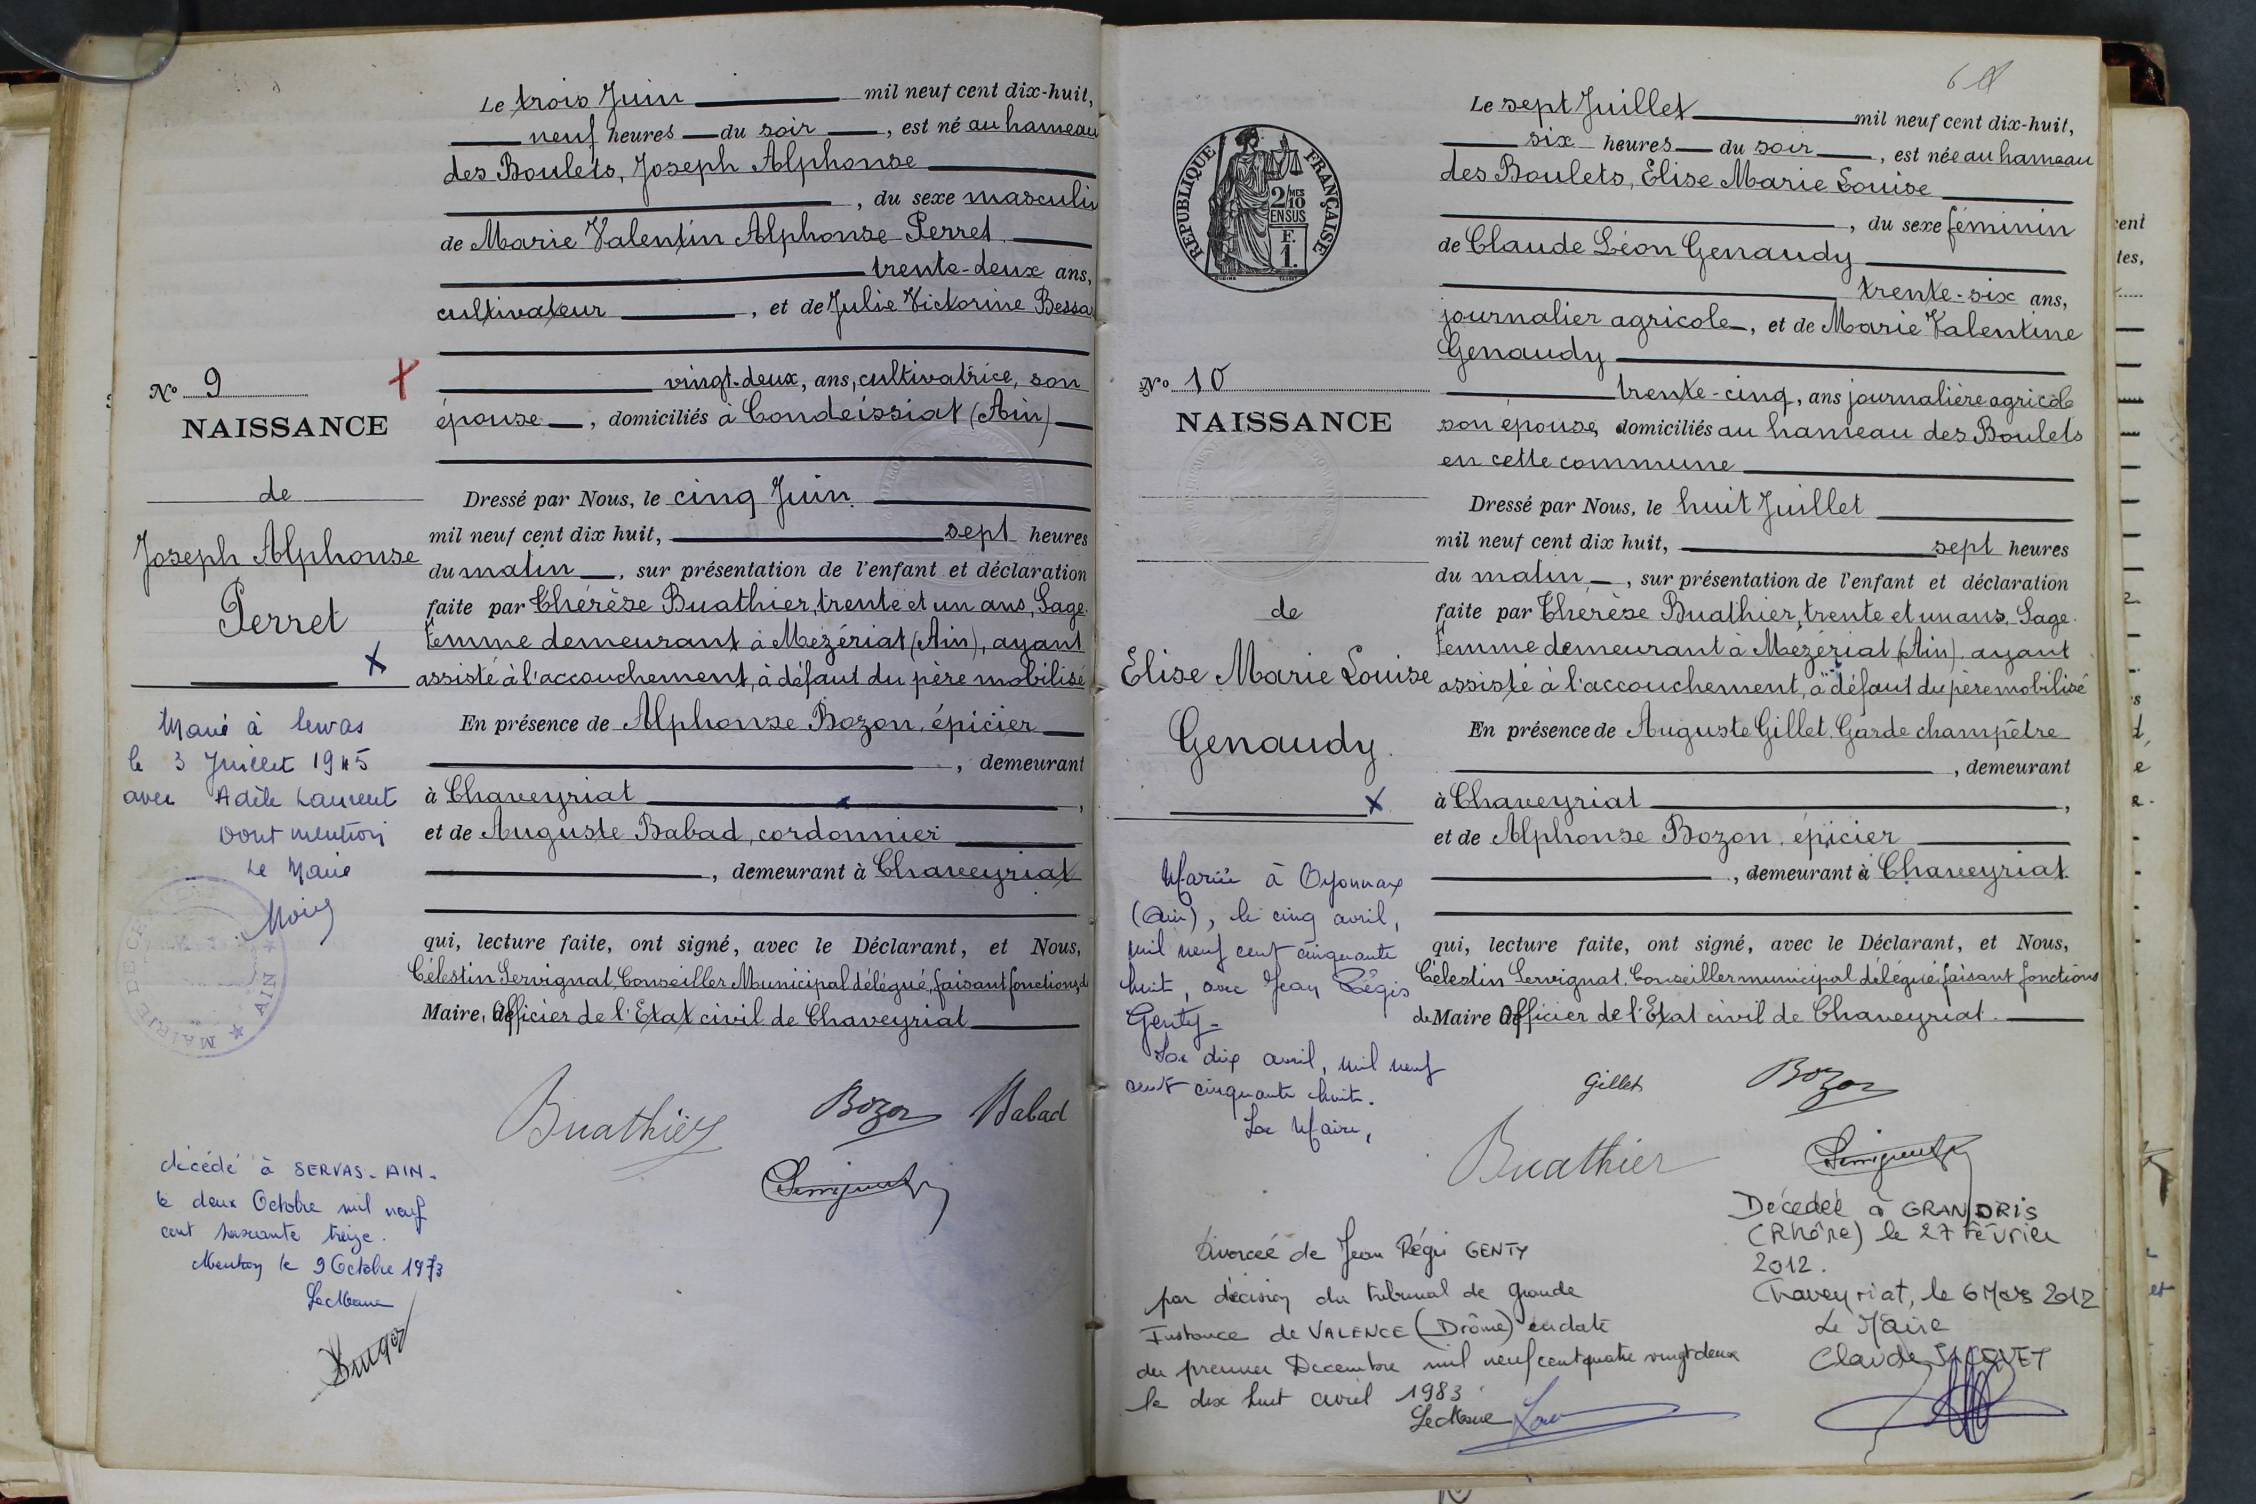 Le trois Juin mil neuf cent dix-huit,
neuf heures du soir, est né au hameau
des Boulets, Joseph Alphonse
, du sexe masculin
de Marie Valentin Alphonse Perret
trente-deux ans,
cultivateur, et de Julie Victorine Bessa
vingt-deux, ans, cultivatrice, son
épouse, domiciliés à Condeissiat (Ain)
No 9
NAISSANCE
de
Joseph Alphonse
Perret
Dressé par Nous, le cinq Juin
mil neuf cent dix huit, sept heures
du matin, sur présentation de l'enfant et déclaration
faite par Thérèse Buathier, trente et un ans, Sage-
femme demeurant à Mézériat (Ain), ayant
assisté à l'accouchement, à défaut du père mobilisé
En présence de Alphonse Bozon, épicier
, demeurant
à Chaveyriat,
et de Auguste Babad, cordonnier
, demeurant à Chaveyriat
qui, lecture faite, ont signé, avec le Déclarant, et Nous,
Célestin Servignat, Conseiller Municipal délégué, faisant fonctions de
Maire, Officier de l'Etat civil de Chaveyriat
Buathier Bozon Babad
Servignat
Marié à Servas
le 3 Juillet 1945
avec Adèle Laurent
Dont mention
Le Maire
MAIRIE DE
AIN
décédé à SERVAS-AIN-
le deux Octobre mil neuf
cent soixante treize.
Mention le 9 Octobre 1973
Le Maire
6
REPUBLIQUE FRANÇAISE
2/10 MES
EN SUS
F.
1.
Le sept Juillet mil neuf cent dix-huit,
six heures du soir, est née au hameau
des Boulets, Elise Marie Louise
, du sexe féminin
de Claude Léon Genaudy
trente-six ans,
journalier agricole, et de Marie Valentine
Genaudy
trente-cinq, ans journalière agricole
son épouse, domiciliés au hameau des Boulets
en cette commune
No 10
NAISSANCE
de
Elise Marie Louise
Genaudy
Dressé par Nous, le huit Juillet
mil neuf cent dix huit, sept heures
du matin, sur présentation de l'enfant et déclaration
faite par Thérèse Buathier, trente et un ans, Sage-
femme demeurant à Mézériat (Ain) ayant
assisté à l'accouchement, à défaut du père mobilisé
En présence de Auguste Gillet, Garde champêtre
, demeurant
à Chaveyriat,
et de Alphonse Bozon, épicier
, demeurant à Chaveyriat.
qui, lecture faite, ont signé, avec le Déclarant, et Nous,
Célestin Servignat, Conseiller municipal délégué faisant fonctions
de Maire Officier de l'Etat civil de Chaveyriat.
Gillet Bozon
Buathier Servignat
Mariée à Oyonnax
(Ain), le cinq avril,
mil neuf cent cinquante
huit, avec Jean Régis
Genty-
Le dix avril, mil neuf
cent cinquante huit.
Le Maire,
Divorcée de Jean Régis GENTY
par décision du tribunal de Grande
Instance de VALENCE (Drôme) en date
du premier Decembre mil neuf cent quatre vingt deux
le dix huit avril 1983
Le Maire
Décédée à GRANDRIS
(Rhône) le 27 Février
2012.
Chaveyriat, le 6 Mars 2012
Le Maire
Claude JACQUET